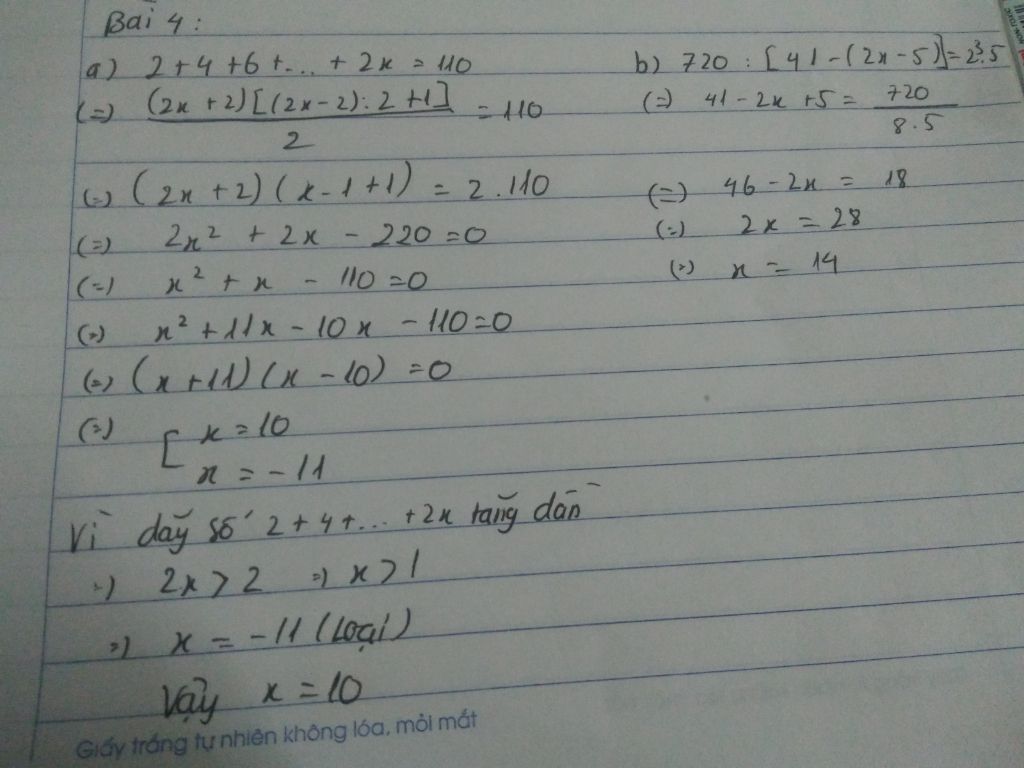 Bài 4:
a) 2 + 4 + 6 + ... + 2x = 110
(=) (2x + 2) [(2x - 2) : 2 + 1] / 2 = 110
(=) (2x + 2) (x - 1 + 1) = 2 . 110
(=) 2x² + 2x - 220 = 0
(=) x² + x - 110 = 0
(=) x² + 11x - 10x - 110 = 0
(=) (x + 11) (x - 10) = 0
(=) [ x = 10
x = -11
Vì dãy số 2 + 4 + ... + 2x tăng dần
=) 2x > 2 =) x > 1
=) x = -11 (loại)
Vậy x = 10
b) 720 : [41 - (2x - 5)] = 2³.5
(=) 41 - 2x + 5 = 720 / 8.5
(=) 46 - 2x = 18
(=) 2x = 28
(=) x = 14
Giấy trắng tự nhiên không lóa, mỏi mắt